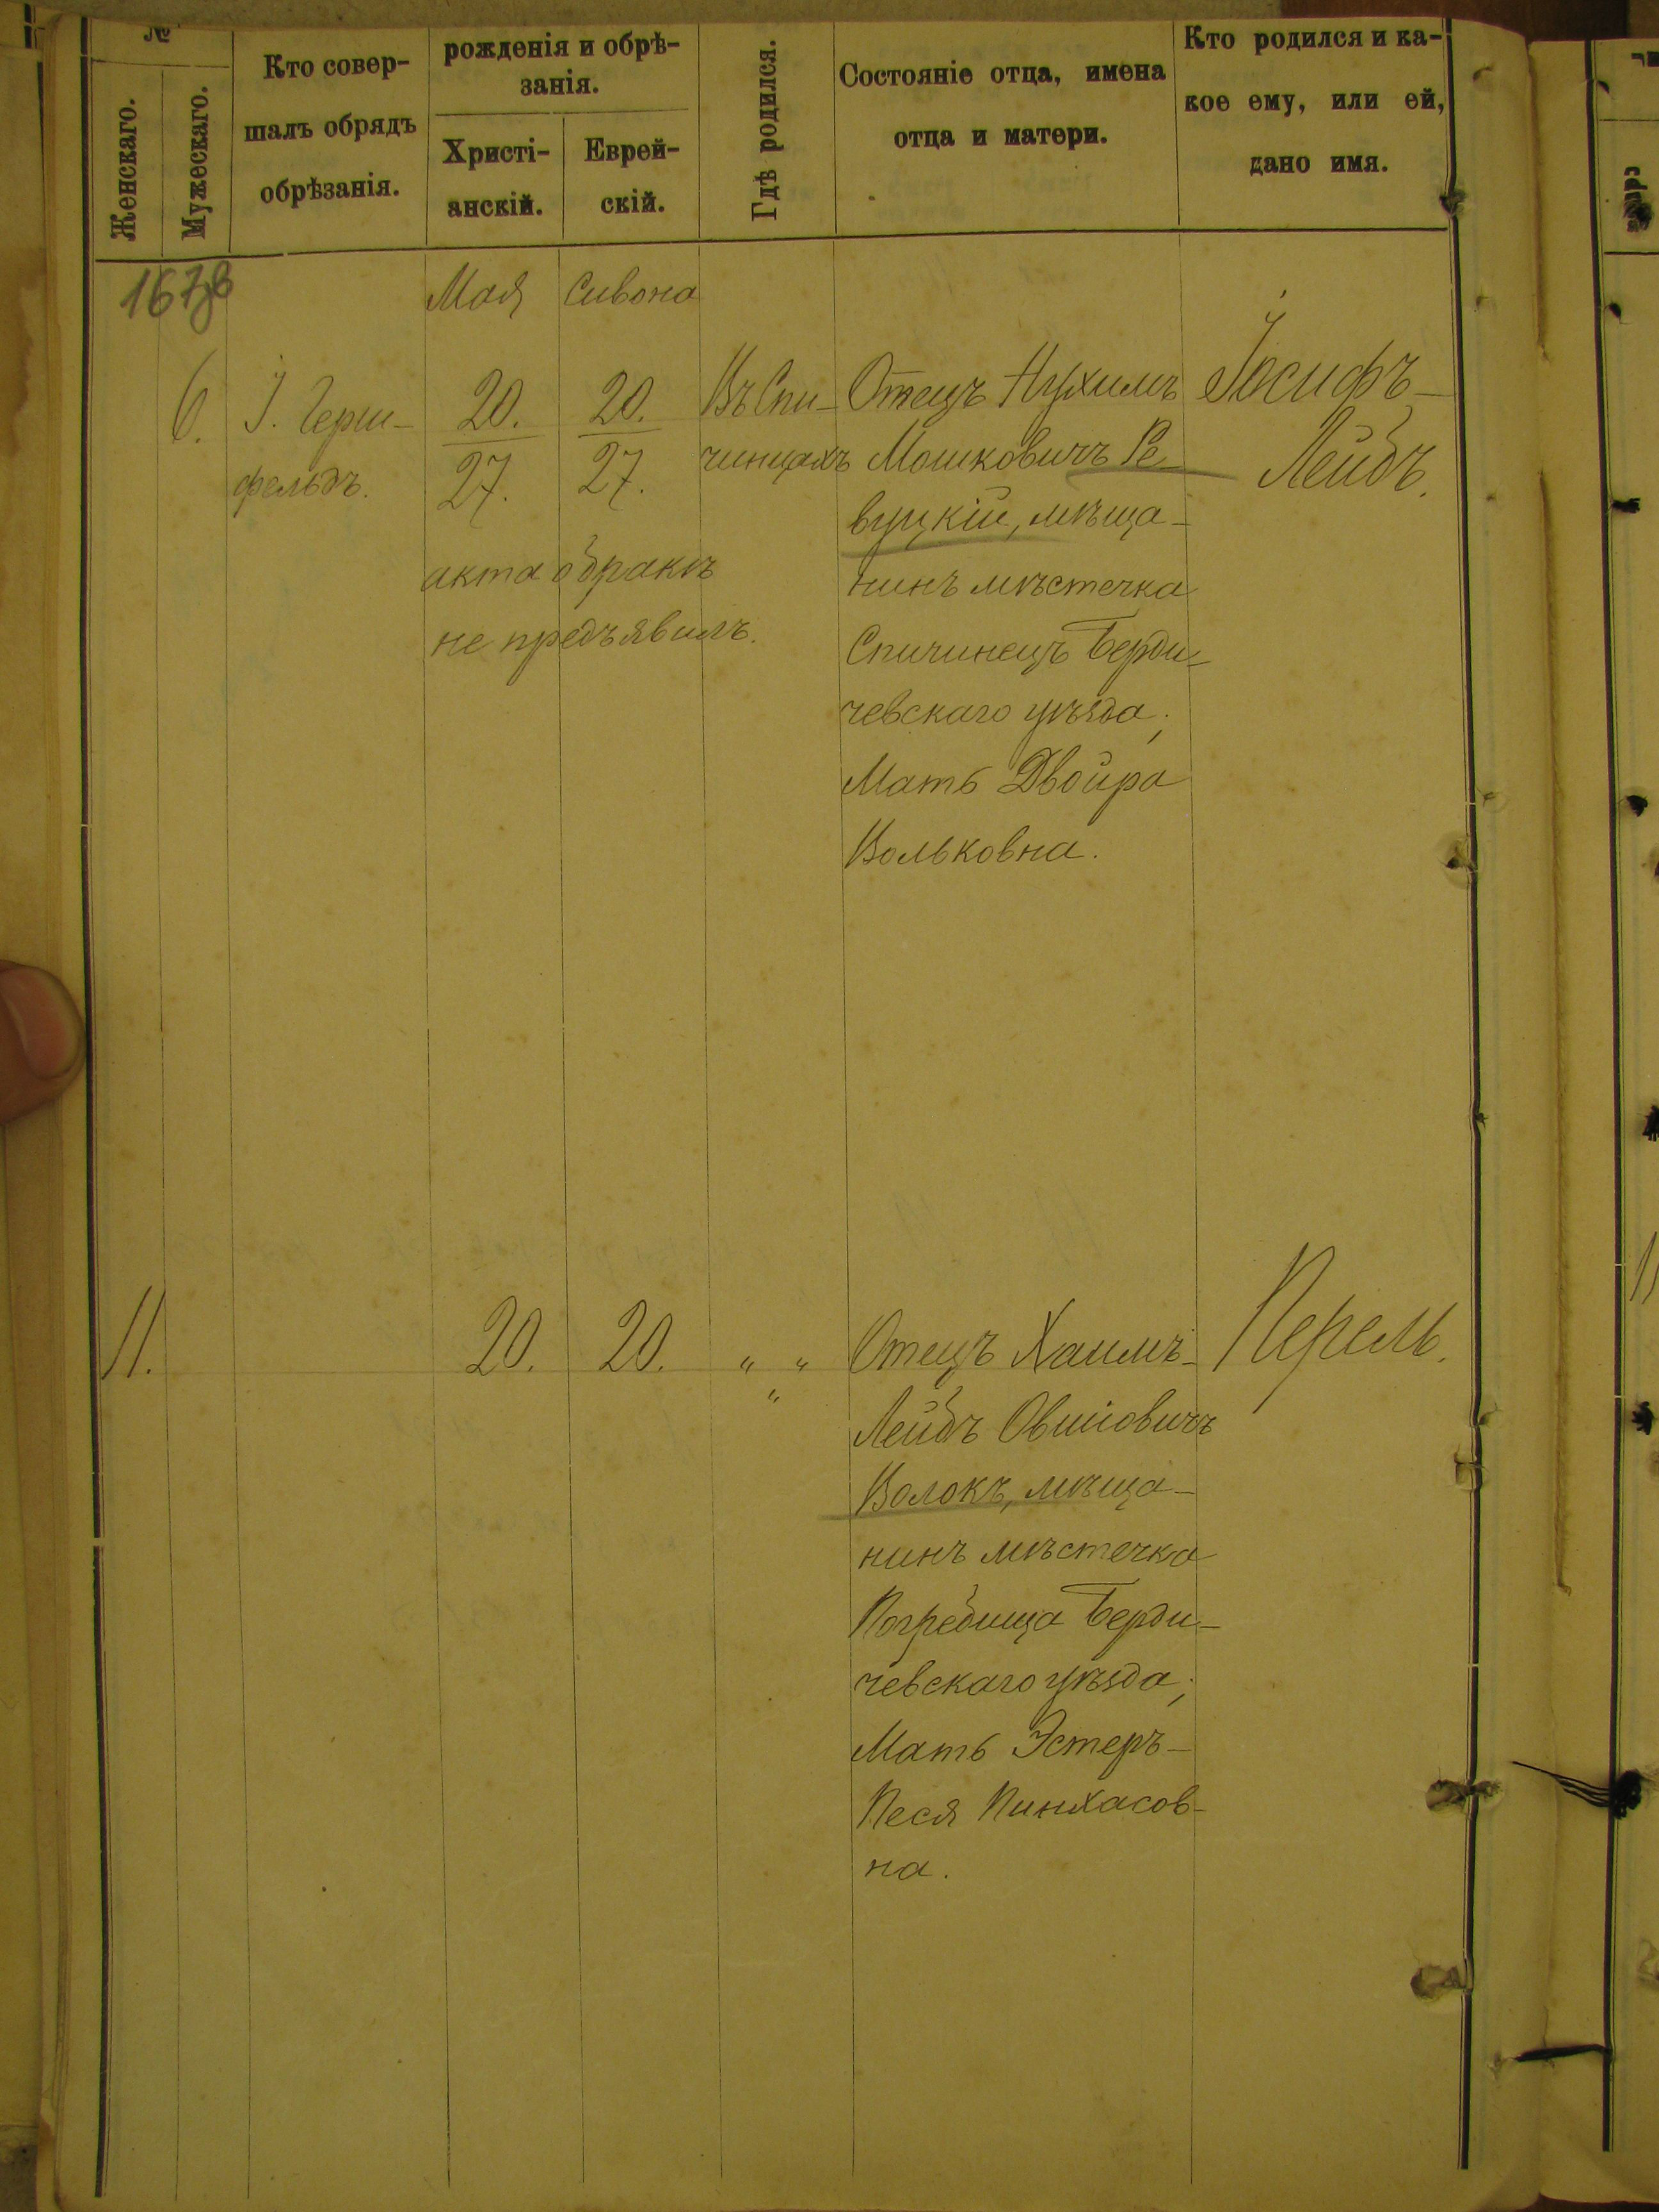 №
Женскаго.
Мужескаго.
Кто совер-
шалъ обрядъ
обрѣзанія.
рожденія и обрѣ-
занія.
Христі-
анскій.
Еврей-
скій.
Гдѣ родился.
Состояніе отца, имена
отца и матери.
Кто родился и ка-
кое ему, или ей,
дано имя.
Мая Сивона
6. І. Герш-
фельдъ.
20.
27.
20.
27.
акта о бракѣ
не предъявилъ.
Въ Спи-
чинцахъ
Отецъ Нухимъ
Мошковичъ Ре-
вуцкій, мѣща-
нинъ мѣстечка
Спичинецъ Берди-
чевскаго уѣзда;
Мать Двойра
Вольковна.
Іосифъ-
Лейбъ.
11. 20. 20. " "
"
Отецъ Хаимъ-
Лейбъ Овшіовичъ
Волокъ, мѣща-
нинъ мѣстечка
Погребища Берди-
чевскаго уѣзда;
Мать Эстеръ-
Песя Пинхасов-
на.
Перель.